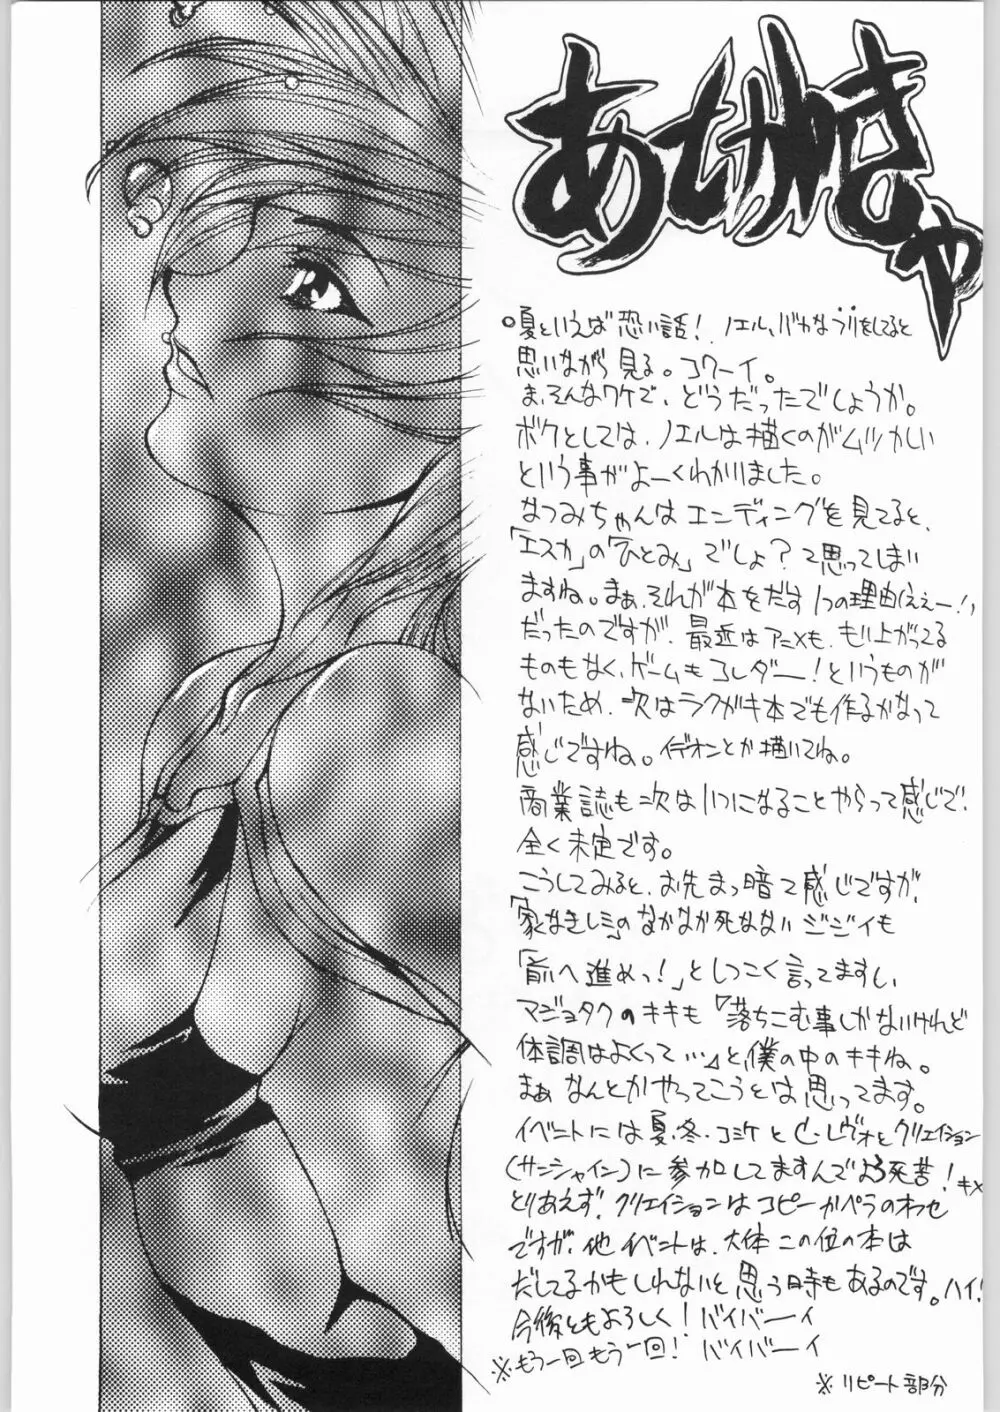 あとがきゃ
。夏といえば恐い話！ノエル、バカなフリをしてると
思いながら見る。コワーイ。
ま、そんなワケで、どうだったでしょうか。
ボクとしては、ノエルは描くのがムツかしい
という事がよーくわかりました。
なつみちゃんはエンディングを見てると、
「エスカ」の「ひとみ」でしょ？て思ってしまい
ますね。まぁ、それが本をだす1つの理由(ええー！)
だったのですが、最近はアニメも、もり上がってる
ものもなく、ゲームもコレダー！というものが
ないため、次はラクガキ本でも作るかなって
感じですね。イデオンとか描いてね。
商業誌も次はいつになることやらって感じで、
全く未定です。
こうしてみると、お先まっ暗て感じですが、
「家なきレミ」のなかなか死なないジジイも
「前へ進めっ！」としつこく言ってますし、
マジョタクのキキも「落ちこむ事しかないけれど
体調はよくって…」と、僕の中のキキね。
まぁなんとかやってこうとは思ってます。
イベントには夏・冬・コミケとC・レヴォとクリエイション
(サンシャイン)に参加してますんでよろ死苦！キメ
とりあえず、クリエイションはコピーかペラのわせ
ですが、他イベントは、大体この位の本は
だしてるかもしれないと思う時もあるのです。ハイ！
今後ともよろしく！バイバーイ
※もう一回もう一回！バイバーイ
※リピート部分